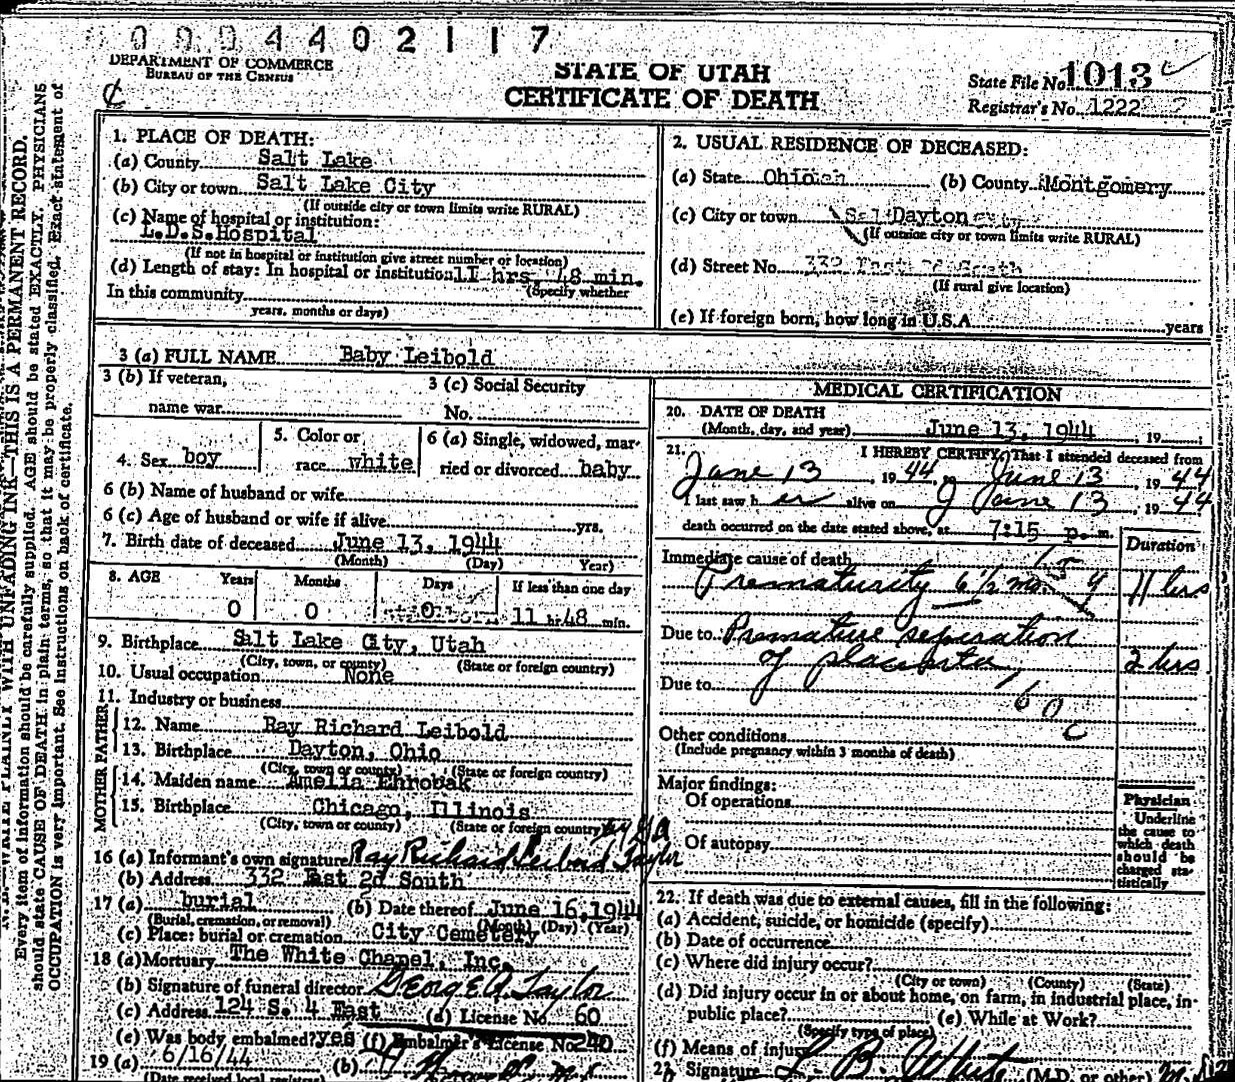 0 0 0 4 4 0 2 1 1 7
DEPARTMENT OF COMMERCE
BUREAU OF THE CENSUS
STATE OF UTAH
CERTIFICATE OF DEATH
State File No. 1013
Registrar's No. 1222
THIS IS A PERMANENT RECORD.
Every item of information should be carefully supplied. AGE should be stated EXACTLY. PHYSICIANS
should state CAUSE OF DEATH in plain terms, so that it may be properly classified. Exact statement of
OCCUPATION is very important. See instructions on back of certificate.
1. PLACE OF DEATH:
(a) County Salt Lake
(b) City or town Salt Lake City
(If outside city or town limits write RURAL)
(c) Name of hospital or institution:
L.D.S. Hospital
(If not in hospital or institution give street number or location)
(d) Length of stay: In hospital or institution 11 hrs. 48 min.
(Specify whether
In this community
years, months or days)
2. USUAL RESIDENCE OF DECEASED:
(a) State Ohio (b) County Montgomery
(c) City or town Dayton
(If outside city or town limits write RURAL)
(d) Street No. 332 East 2d South
(If rural give location)
(e) If foreign born, how long in U.S.A years
3 (a) FULL NAME Baby Leibold
3 (b) If veteran,
name war
3 (c) Social Security
No.
4. Sex boy
5. Color or
race white
6 (a) Single, widowed, mar-
ried or divorced baby
6 (b) Name of husband or wife
6 (c) Age of husband or wife if alive yrs.
7. Birth date of deceased June 13, 1944
(Month) (Day) Year)
8. AGE Years Months Days If less than one day
0 0 0 11 hr. 48 min.
9. Birthplace Salt Lake City, Utah
(City, town, or county) (State or foreign country)
10. Usual occupation None
11. Industry or business
FATHER
12. Name Ray Richard Leibold
13. Birthplace Dayton, Ohio
(City, town or county) (State or foreign country)
MOTHER
14. Maiden name Amelia Ehrobak
15. Birthplace Chicago, Illinois
(City, town or county) (State or foreign country)
16 (a) Informant's own signature Ray Richard Leibold Taylor
(b) Address 332 East 2d South
17 (a) burial (b) Date thereof June 16, 1944
(Burial, cremation, or removal) (Month) (Day) (Year)
(c) Place: burial or cremation City Cemetery
18 (a) Mortuary The White Chapel, Inc.
(b) Signature of funeral director George A. Taylor
(c) Address 124 S. 4 East (d) License No. 60
(e) Was body embalmed? yes (f) Embalmer's License No. 240
19 (a) 6/16/44 (b)
(Date received local registrar)
MEDICAL CERTIFICATION
20. DATE OF DEATH
(Month, day, and year) June 13, 1944, 19
21. I HEREBY CERTIFY, That I attended deceased from
June 13, 1944, June 13, 1944
I last saw her alive on June 13, 1944
death occurred on the date stated above, at 7:15 p. m.
Duration
Immediate cause of death
Prematurity 6 1/2 mo. 11 hrs
Due to Premature separation
of placenta 2 hrs
Due to
Other conditions
(Include pregnancy within 3 months of death)
Major findings:
Of operations
Of autopsy
Physician
Underline
the cause to
which death
should be
charged sta-
tistically
22. If death was due to external causes, fill in the following:
(a) Accident, suicide, or homicide (specify)
(b) Date of occurrence
(c) Where did injury occur?
(City or town) (County) (State)
(d) Did injury occur in or about home, on farm, in industrial place, in-
public place? (e) While at Work?
(Specify type of place)
(f) Means of injury
23. Signature L. B. White (M.D. or other) M.D.